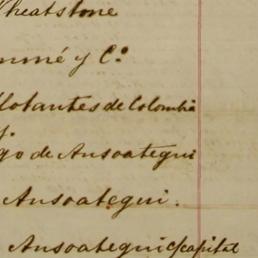 Wheatstone
mmé y Cº
flotantes de Colombia
go de Ansoategui
Ansoategui.
Ansoategui c/capital